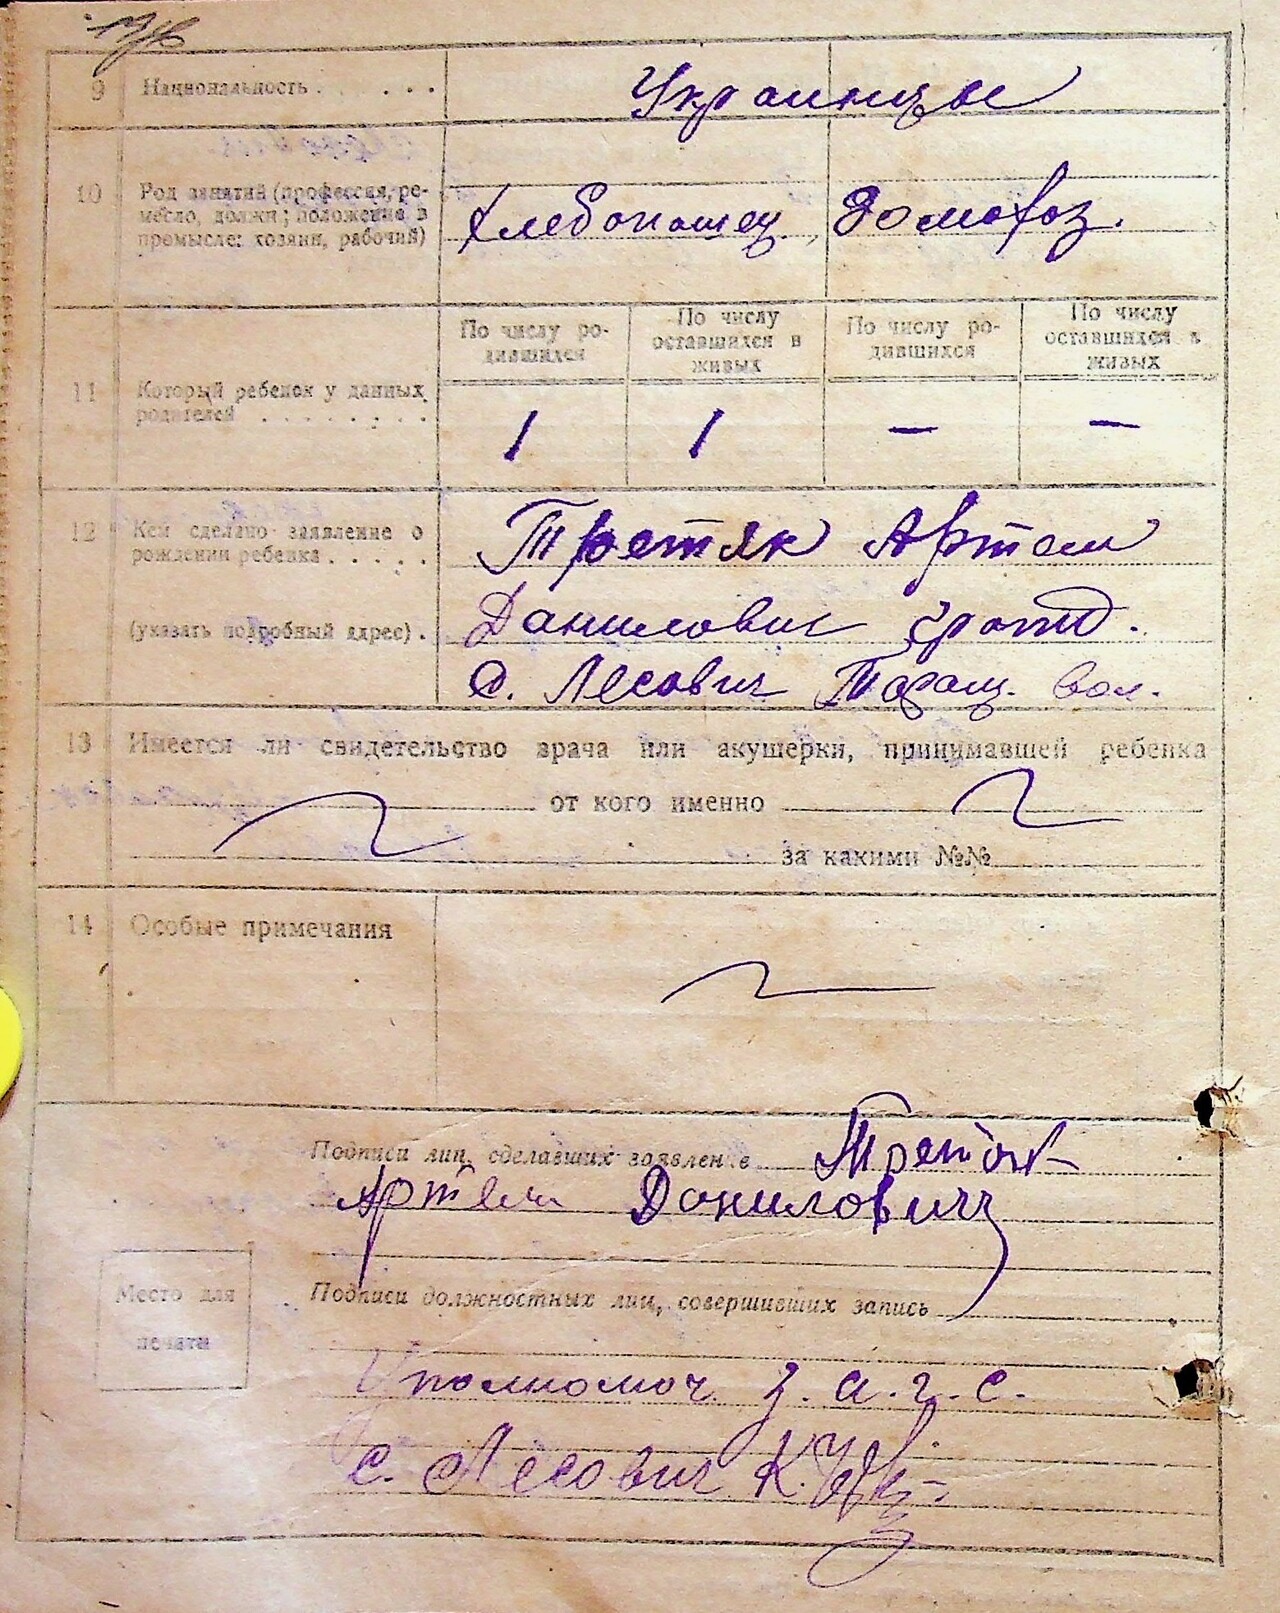 9 Национальность . . . . . . Украинцы
10 Род занятий (профессия, ре-
месло, должн; положение в
промысле: хозяин, рабочий) Хлебопашец, Домохоз.
По числу ро-
дившихся
По числу
оставшихся в
живых
По числу ро-
дившихся
По числу
оставшихся в
живых
11 Который ребенок у данных
родителей . . . . . . . . 1 1 — —
12 Кем сделано заявление о
рождении ребенка . . . . . Третяк Артем
(указать подробный адрес) . Данилович гражд.
с. Лесович Таращ. вол.
13 Имеется ли свидетельство врача или акушерки, принимавшей ребенка
от кого именно
за какими №№
14 Особые примечания
Подписи лиц, сделавших заявление Третяк
Артем Данилович
Место для
печати
Подписи должностных лиц, совершивших запись
Уполномоч. з.а.г.с.
с. Лесович К.